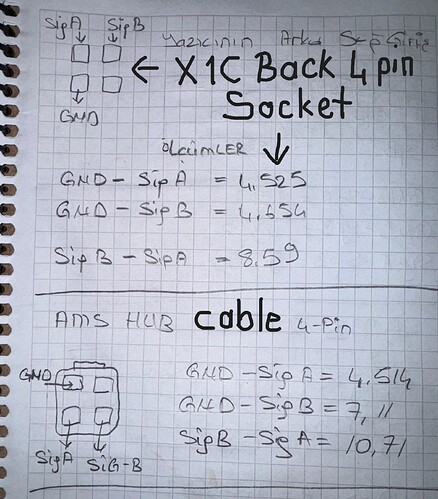 SigA SigB
Yazıcının Arka Sep Girişi
← X1C Back 4 pin
Socket
GND
ÖLÇÜMLER
GND - SigA = 4.525
GND - SigB = 4.654
SigB - SigA = 8.59
AMS HUB cable 4-Pin
GND
GND - SigA = 4.514
GND - SigB = 7,11
SigB - SigA = 10,71
SigA SiG-B